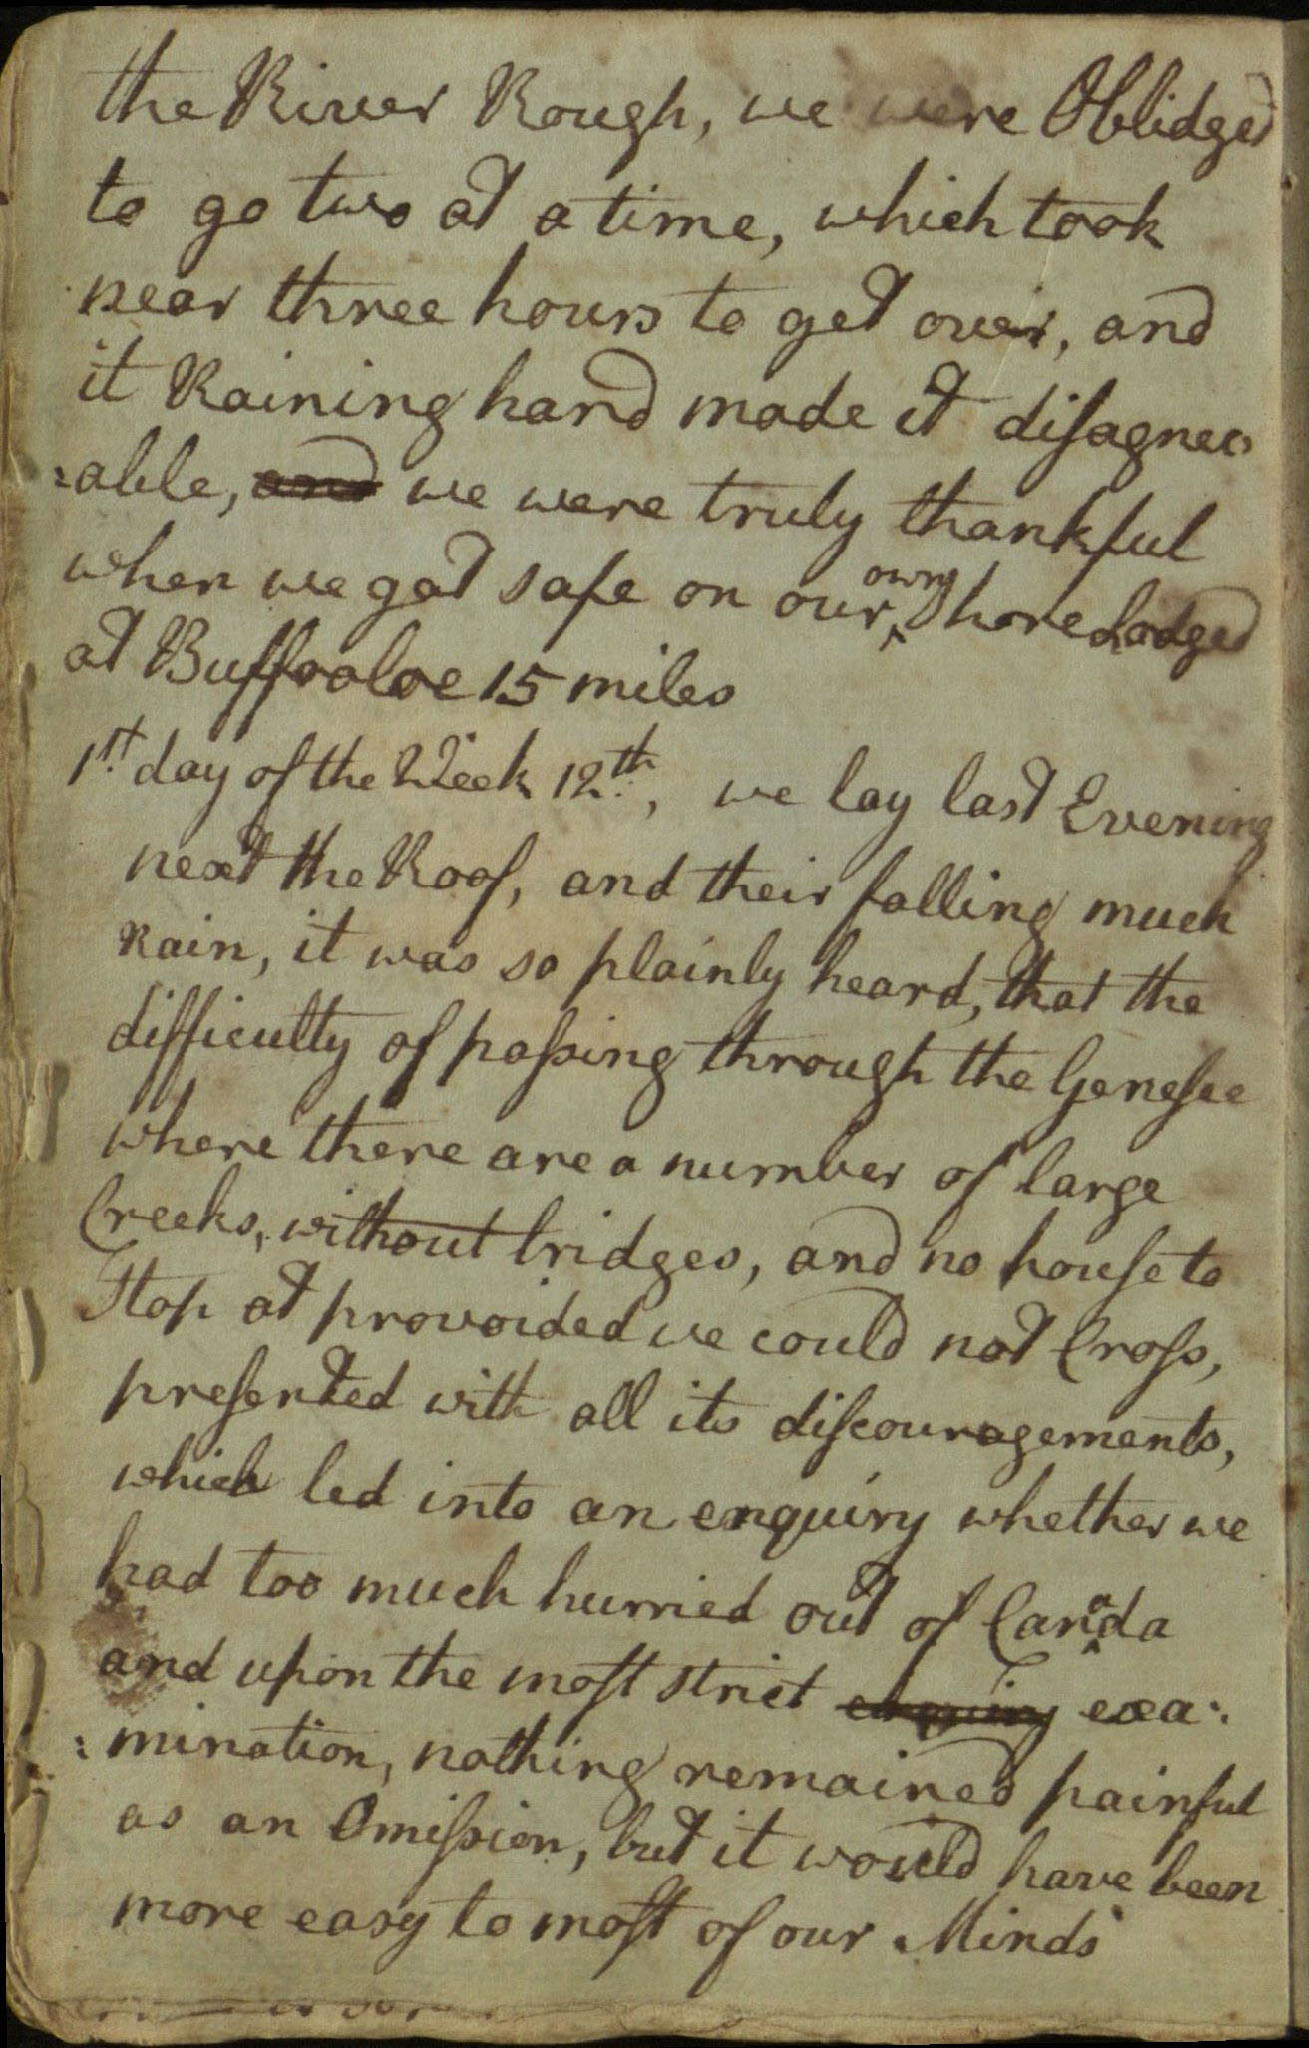 the River Rough, we were Oblidged
to go two at a time, which took
near three hours to get over, and
it Raining hard made it disagree
:able, and we were truly thankful
when we got safe on our own Shore Lodged
at Buffaloe 15 miles
1st day of the Week 12th, we lay last Evening
next the Roof, and their falling much
Rain, it was so plainly heard, that the
difficulty of passing through the Genesee
where there are a number of large
Creeks, without bridges, and no house to
Stop at provoided we could not Cross,
presented with all its discouragements,
which led into an enquiry whether we
had too much hurried out of Canada
and upon the most strict enquiry exa:
:mination, nothing remained painful
as an Omission, but it would have been
more easy to most of our Minds